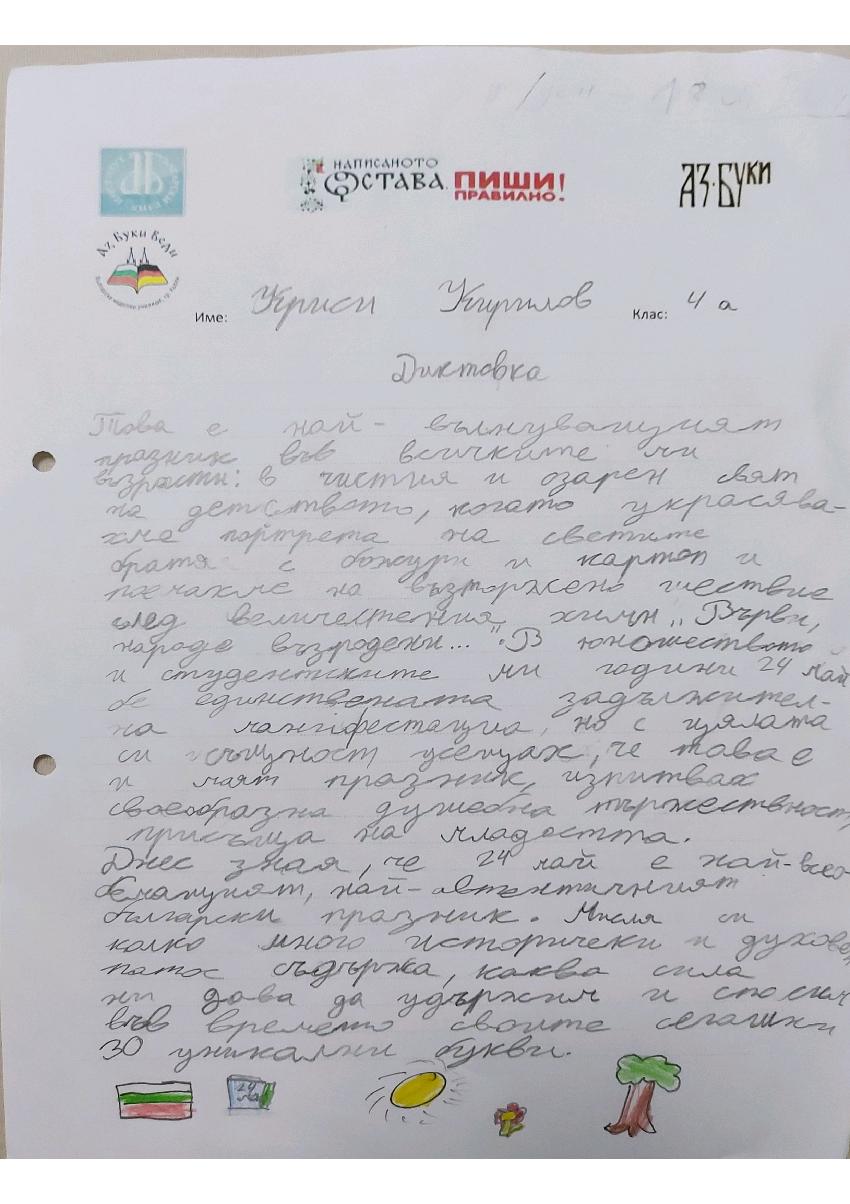 НАПИСАНОТО
ОСТАВА. ПИШИ
ПРАВИЛНО!
АЗ·БУКИ
Аз Буки Веди
Име: Криси Кирилов Клас: 4 а
Диктовка
Това е най- вълнуващият
празник във всичките ми
възрасти: в чистия и озарен свят
на детството, когато украсява-
хме портрета на светите
братя с божури и картон и
поемахме на възторжено шествие
след величествения химн „Върви,
народе възродени...". В юношеството
и студентските ми години 24 май
бе единствената задължител-
на манифестация, но с цялата
си същност усещах, че това е
и моят празник, изпитвах
своеобразна душевна тържественост,
присъща на младостта.
Днес зная, че 24 май е най-всео-
бемащият, най-автентичният
български празник. Мисля си
колко много исторически и духовен
патос съдържа, каква сила
ни дава да удържим и спасим
във времето своите сегашни
30 уникални букви.
24
май